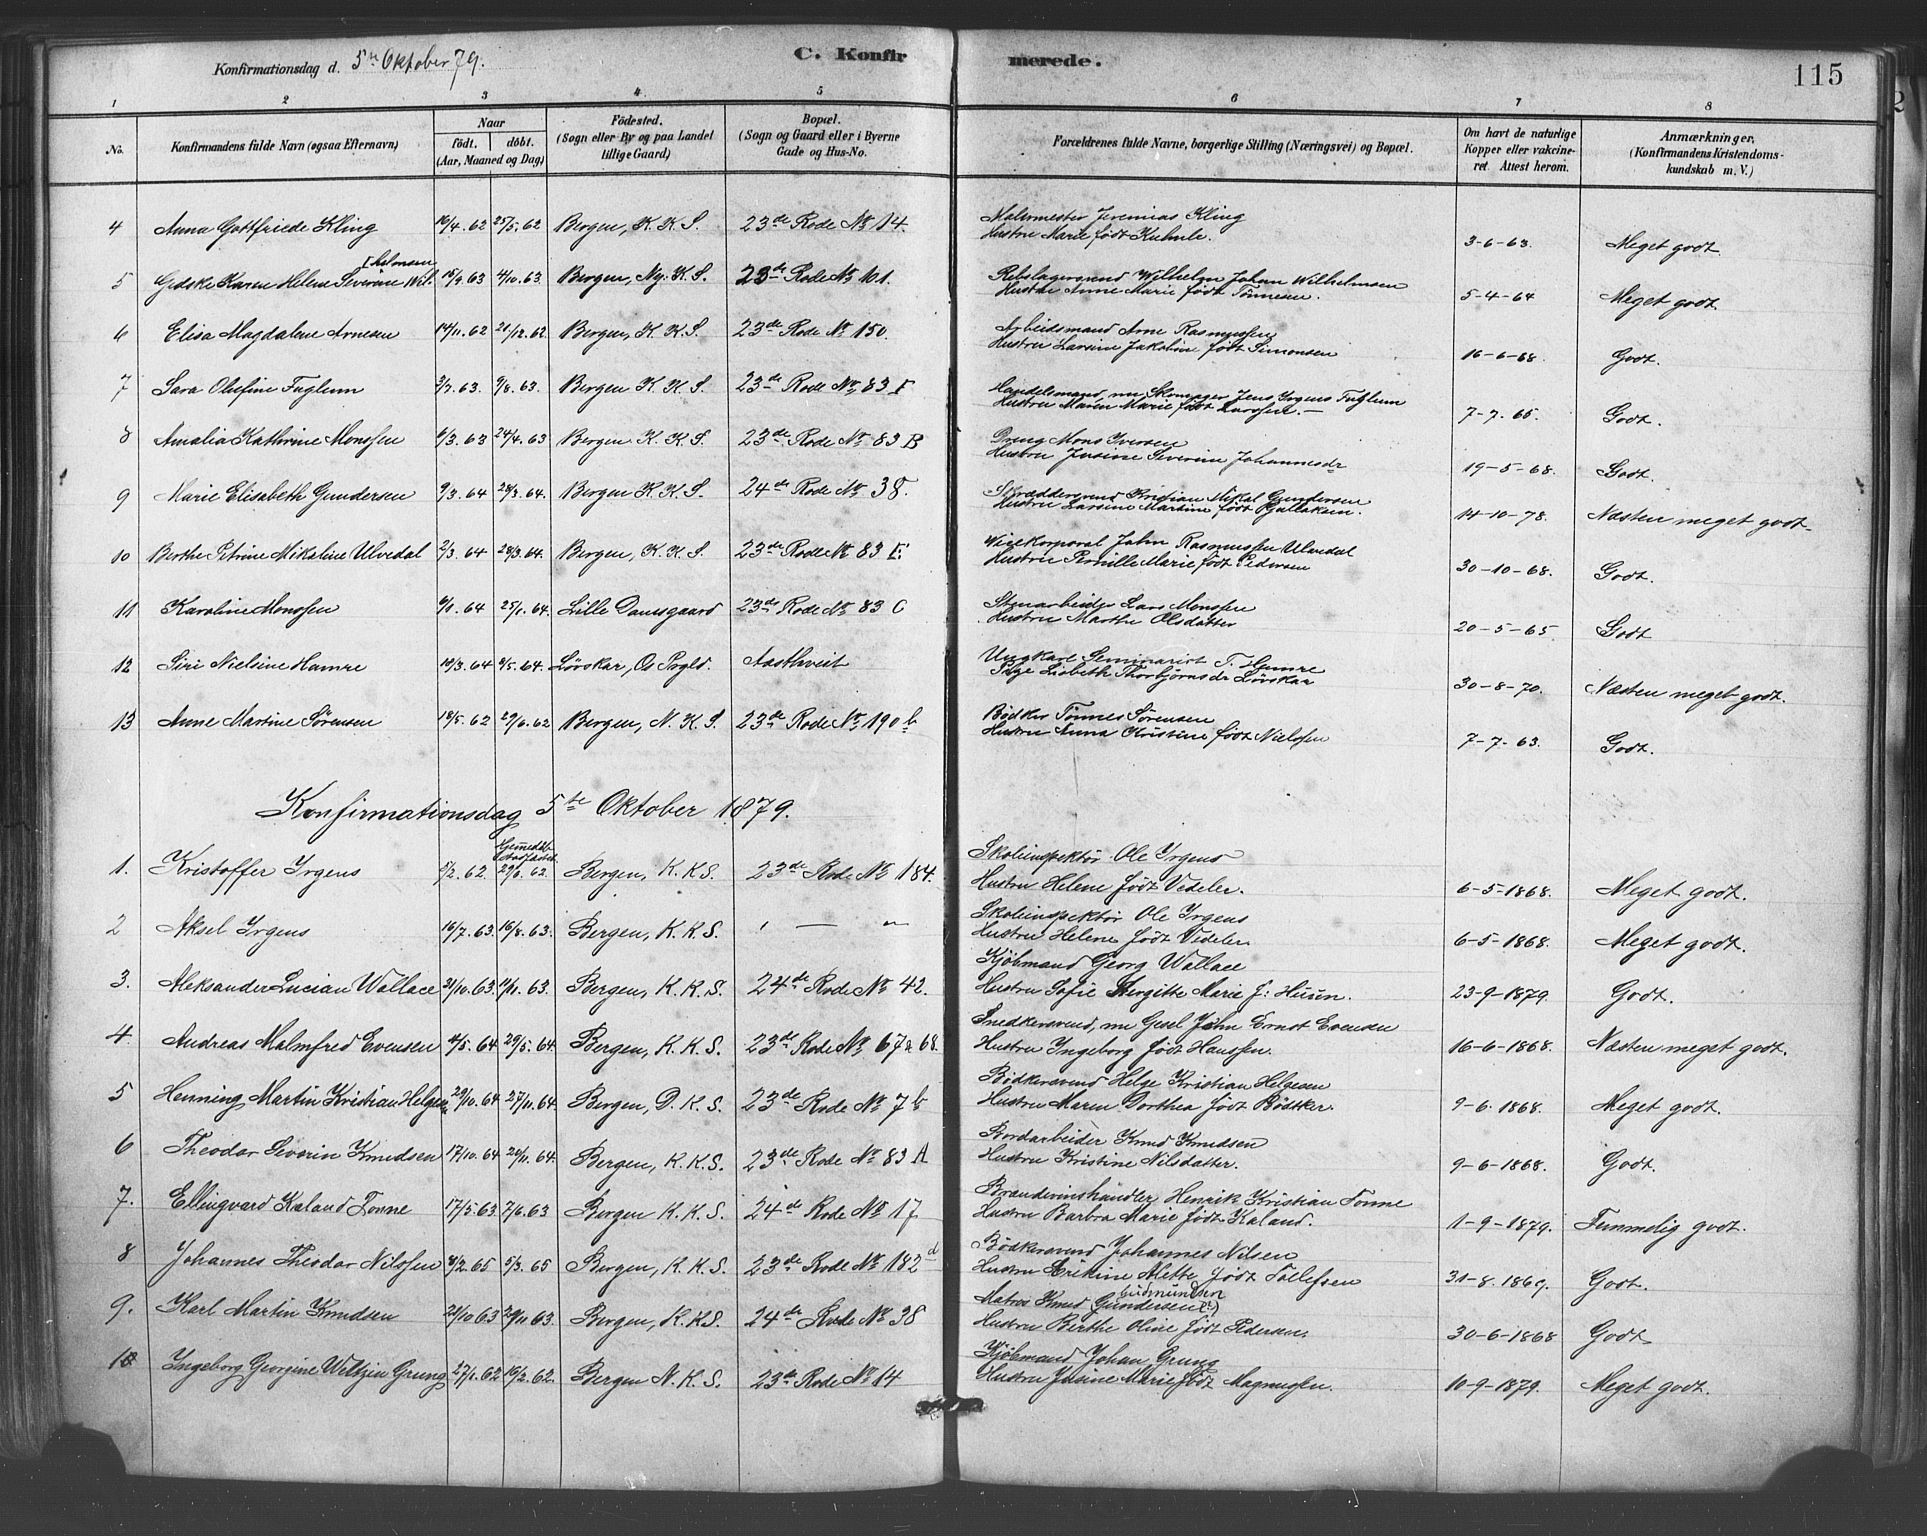 Konfirmationsdag d. 5te Oktober 79.
C. Konfirmerede.
115
1 2 3 4 5 6 7 8
No. Konfirmandens fulde Navn (ogsaa Efternavn) Naar födt. döbt. (Aar, Maaned og Dag) Födested. (Sogn eller By og paa Landet tillige Gaard) Bopæl. (Sogn og Gaard eller i Byerne Gade og Hus-No. Forældrenes fulde Navne, borgerlige Stilling (Næringsvei) og Bopæl. Om havt de naturlige Kopper eller vakcineret. Attest herom. Anmærkninger, (Konfirmandens Kristendomskundskab m. V.)
4 Anna Gottfriede Kling 16/4.62 25/5.62 Bergen, K.K.S. 23de Rode No 14. Malermester Jeremias Kling
Hustru Marie født Kuhnle. 3-6-63. Meget godt.
5 Gedske Karen Helene Severine Wilhelmsen 15/9.63 4/10.63 Bergen, Ny.K.S. 23de Rode No 101. Rebslagersvend Wilhelm Johan Wilhelmsen
Hustru Anne Marie født Tönnesen. 5-4-64 Meget godt.
6 Elisa Magdalene Arnesen 14/11.62 21/12.62 Bergen, K.K.S. 23de Rode No 150. Arbeidsmand Arne Rasmussen
Hustru Larsine Jakobine født Simonsen 16-6-68. Godt.
7 Sara Olufine Fuglum 3/7.63. 9/8.63. Bergen K.K.S. 23de Rode No 83 F Handelsmand, nu Skomager Jens Irgens Fuglum
Hustru Maren Marie født Larssen. 7-7.65. Godt.
8 Amalia Kathrine Monssen 6/3.63 24/4.63 Bergen K.K.S. 23de Rode No 83 B Dreng Mons Iversen
Hustru Jusine Severine Johannesdr 19-5-68. Godt.
9 Marie Elisabeth Gundersen 9/3.64 28/3.64. Bergen K.K.S. 24de Rode No 38. Skræddersvend Kristian Mikal Gundersen
Hustru Larsine Martine født 14-10-78. Næsten meget godt.
10 Berthe Petrine Mikaline Ulvedal 2/3.64 28/3.64. Bergen, K.K.S. 23de Rode No 83 E. Vicekorporal John Rasmussen Ulvedal
Hustru Pernille Marie født Pedersen 30-10-68. Godt.
11 Karoline Monssen 6/1.64 25/1.64. Lille Damsgaard 23de Rode No 83 C Stenarbeider Lars Monssen
Hustru Marthe Olsdatter 20-5-65. Godt
12 Siri Nielsine Hamre 19/3.64 9/5.64. Lövskar, Os Prgld. Aasthveit Ungkarl Seminarist T. Hamre
Pige Lisbeth Thorbjörnsdr Lövskar 30-8-70. Næsten meget godt.
13 Anne Martine Sörensen 18/5.62 29/6.62 Bergen, N.K.S. 23de Rode No 190 b Bödker Tönnes Sörensen
Hustru Anna Kristine født Nielssen 7-7-63. Godt.
Konfirmationsdag 5te Oktober 1879.
1. Kristoffer Irgens 5/2.62. 29/6.62 Bergen, K.K.S. 23de Rode No 184. Skoleinspektör Ole Irgens
Hustru Helene født Vedeler. 6-5-1868. Meget godt.
2 Aksel Irgens 16/7.63. 16/8.63. Bergen, K.K.S. Skoleinspektör Ole Irgens
Hustru Helene født Vedeler 6-5-1868. Meget godt.
3. Aleksander Lucian Wallace 21/10.63. 9/11.63. Bergen, K.K.S. 24de Rode No 42. Kjöbmand Georg Wallace
Hustru Sofie Birgitte Marie f: Husen. 23-9-1879. Godt.
4. Andreas Malmfred Evensen 11/5.64 29/5.64 Bergen, K.K.S. 23de Rode No 67 a 68. Snedkersvend, nu Gesel John Ernst Evensen
Hustru Ingeborg født Hanssen. 16-6-1868. Næsten meget godt.
5 Henning Martin Kristian Helgesen 29/10.64 27/11.64 Bergen, D.K.S. 23de Rode No 7 b Bödkersvend Helge Kristian Helgesen
Hustru Maren Dorthea født Bödtker. 9-6.1868. Meget godt.
6 Theodor Severin Knudsen 17/10.64 20/11.64. Bergen, K.K.S. 23de Rode No 83 A Bordarbeider Knud Knudsen
Hustru Kristine Nilsdatter. 9-6-1868. Godt.
7. Ellingvard Kaland Tonne 17/5.63 7/6.63 Bergen K.K.S. 24de Rode No 17 Brændevinshandler Henrik Kristian Tonne
Hustru Barbra Marie født Kaland. 1-9-1879. Temmelig godt.
8 Johannes Theodor Nilssen 4/2.65 5/3.65 Bergen, K.K.S. 23de Rode No 182 d Bödkersvend Johannes Nilsen
Hustru Erikine Mette født Tollefsen 31-8-1869. Godt.
9. Karl Martin Knudsen 21/10.63 29/11.63 Bergen, K.K.S. 24de Rode No 38 Matros Knud Gundersen (?) Gudmundsen
Hustru Berthe Oline født Pedersen. 30-6-1868 Godt
10 Ingeborg Georgine Weltzin Grung 27/1.62 16/2.62. Bergen N.K.S. 23de Rode No 14 Kjöbmand Johan Grung
Hustru Jusine Marie født Magnussen. 10-9-1879. Meget godt.